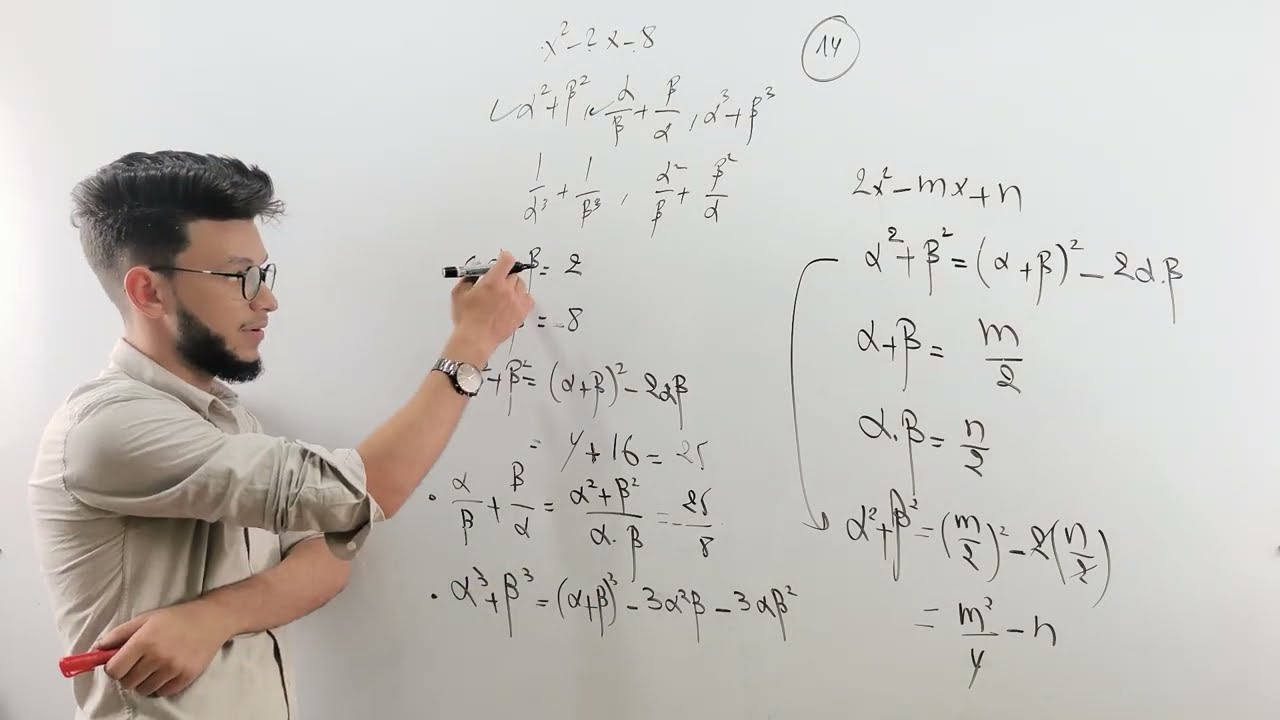 x² - 2x - 8
14
✓ α² + β², ✓ α/β + β/α, α³ + β³
1/α³ + 1/β³, α²/β + β²/α
β = 2
= -8
² + β² = (α + β)² - 2αβ
= 4 + 16 = 25
• α/β + β/α = (α² + β²)/(α . β) = -25/8
• α³ + β³ = (α + β)³ - 3α²β - 3αβ²
2x² - mx + n
α² + β² = (α + β)² - 2α.β
α + β = m/2
α.β = n/2
α² + β² = (m/2)² - 2(n/2)
= m²/4 - n